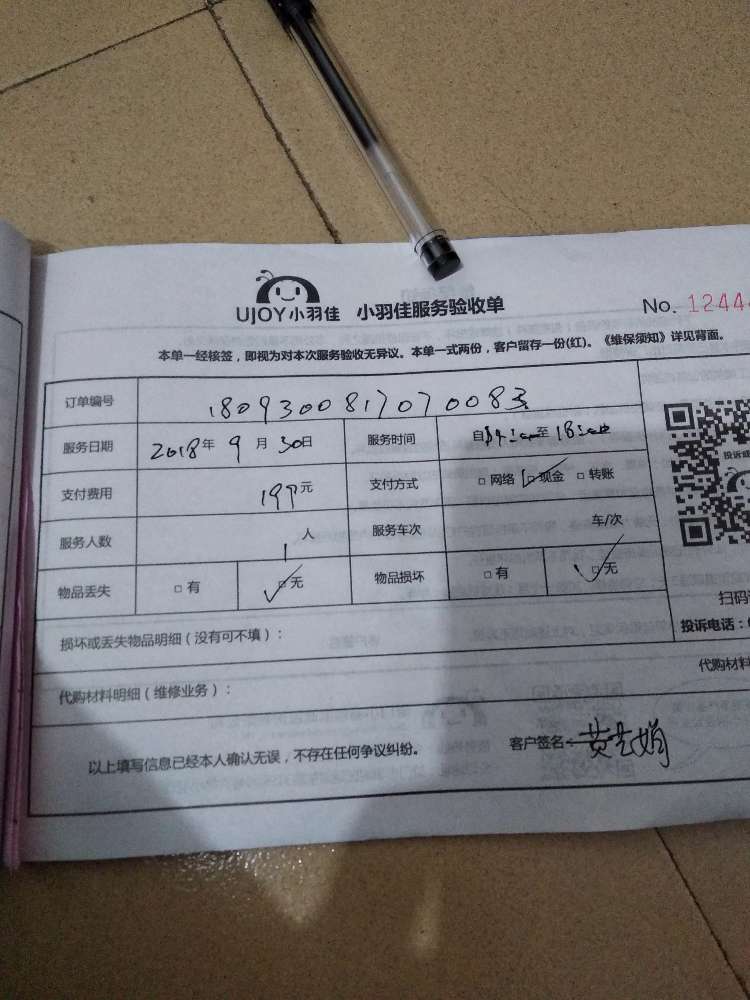 UJOY小羽佳 小羽佳服务验收单 No. 1244
本单一经核签，即视为对本次服务验收无异议。本单一式两份，客户留存一份(红)。《维保须知》详见背面。
订单编号 180930081707 0083
服务日期 2018年 9 月 30日 服务时间 自 至 18:00
支付费用 199元 支付方式 □ 网络 □ 现金 □ 转账
服务人数 1 人 服务车次 车/次
物品丢失 □ 有 □ 无 物品损坏 □ 有 □ 无
投诉
扫码
损坏或丢失物品明细（没有可不填）： 投诉电话：
代购材料明细（维修业务）： 代购材料
以上填写信息已经本人确认无误，不存在任何争议纠纷。 客户签名：